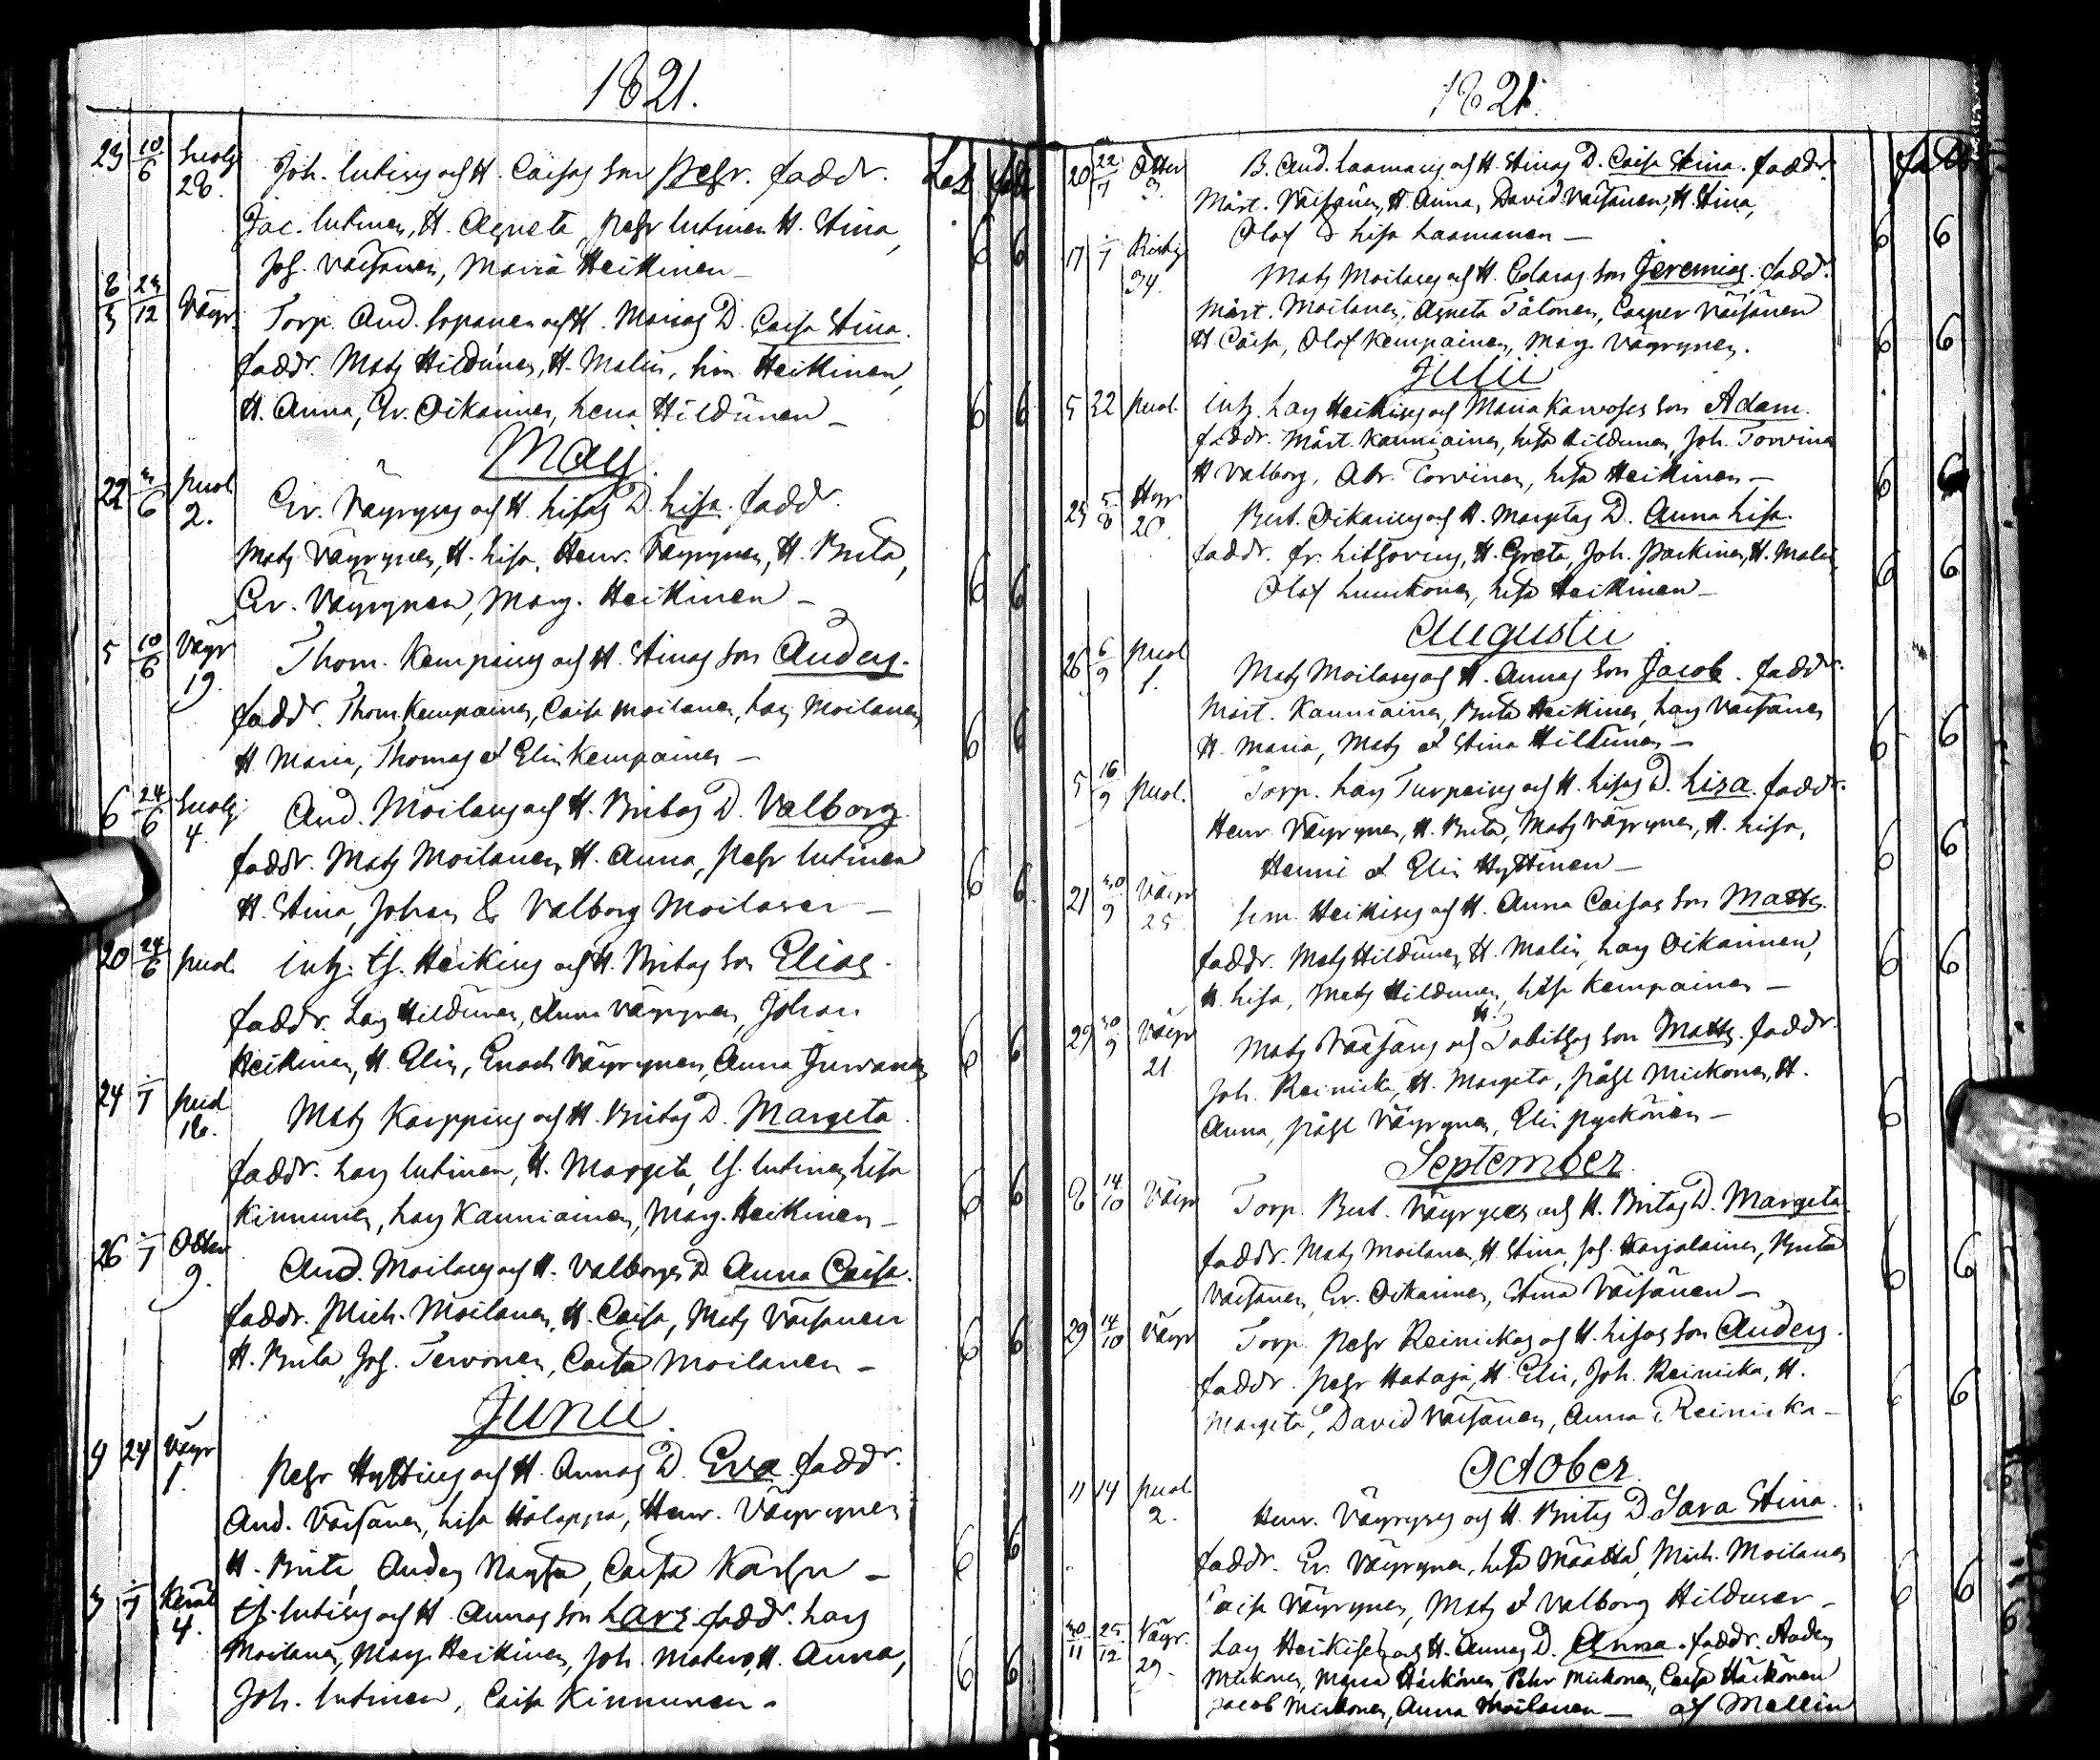 1821.
23 10/6 Suolj 28. Joh. Lutins och H. Caisas Son Pehr. faddr.
Jac. Lutinen, H. Agneta, Pehr Lutinen H. Stina, 6 6
Joh. Väisänen, Maria Heikkinen —
8/5 23/12 Väyr. Torp. And. Sopanen och H. Marias D. Caisa Stina.
faddr. Mats Hildunen, H. Malin, Sim Heikkinen,
H. Anna, Er. Oikarinen, Lena Hildunen — 6 6
Maij.
22 3/6 Puol 2. Er. Väyryns och H. Lisas D. Lisa. fadd.
Mats Väyrynen, H. Lisa, Henr. Väyrynen, H. Brita,
Er. Väyrynen, Marg. Heikkinen — 6 6
5 10/6 Väyr 19. Thom. Kempains och H. Stinas Son Anders.
faddr. Thom Kempainen, Caisa Moilanen, Lars Moilanen
H. Maria, Thomas & Elin Kempainen — 6 6
6 24/6 Suolj. 4. And. Moilans och H. Britas D. Valborg.
faddr. Mats Moilanen, H. Anna, Pehr Lutinen
H. Stina, Johan & Valborg Moilanen — 6 6
20 24/6 Puol. Inh. Es. Heikins och H. Britas Son Elias.
faddr. Lars Hildunen, Anna Väyrynen, Johan
Heikkinen, H. Elin, Enoch Väyrynen, Anna Juvonen 6 6
24 1/7 Puol 16. Mats Karppins och H. Britas D. Margeta.
faddr. Lars Lutinen, H. Margeta, Es. Lutinen, Lisa
Kinnunen, Lars Kanniainen, Marg. Heikkinen — 6 6
26 1/7 Otter 9. And. Moilans och H. Valborgs D. Anna Caisa.
faddr. Mich. Moilanen, H. Caisa, Mats Väisänen
H. Brita, Jos. Tervonen, Caisa Moilanen — 6 6
Junii.
9 24 Väyr 1. Pehr Hyttins och H. Annas D. Eva. faddr.
And. Väisänen, Lisa Holappa, Henr. Väyrynen
H. Brita, Anders Caisa — 6 6
3 1/7 Keräl 4. Es. Lutins och H. Annas Son Lars. faddr. Lars
Moilanen, Marg. Heikkinen, Joh. Matero, H. Anna,
Joh. Lutinen, Caisa Kinnunen. 6 6
1821.
20 22/7 Otter 3. B. And. Laamans och H. Stinas D. Caisa Stina. faddr.
Mårt. Väisänen, H. Anna, David Väisänen, H. Stina,
Olof & Lisa Laamanen — 6 6
17 1/7 34. Mats Moilans och H. Claras Son Jeremias. fadd.
Mårt. Moilanen, Agneta Tålonen, Casper Väisänen
H Caisa, Olof Kempainen, Marg. Väyrynen. 6 6
Julii
5 22 Puol. Inh. Lars Heikins och Maria Karvoses Son Adam.
faddr. Mårt. Kanniainen, Lisa Hildunen, Joh. Torvinen
H Valborg, Abr. Torvinen, Lisa Heikkinen — 6 6
25 5/8 Hyr 28. Bert. Oikarins och H. Margetas D. Anna Lisa.
faddr. H. Greta, Joh. H. Malin,
Olof Lisa Heikkinen — 6 6
Augustii
26 6/9 Puol 1. Mats Moilans och H. Annas Son Jacob. faddr.
Mårt. Kanniainen, Brita Heikkinen, Lars Väisänen
H. Maria, Mats & Stina Hildunen — 6 6
5 16/9 Puol. Torp. Lars Turpeins och H. Lisas D. Lisa. faddr.
Henr. Väyrynen, H. Brita, Mats Väyrynen, H. Lisa,
Henric & Elin Hyttinen — 6 6
21 30/9 Väyr 25. Sim. Heikins och H. Anna Caisas Son Matts.
faddr. Mats Hildunen, H. Malin, Lars Oikarinen,
H. Lisa, Mats Hildunen, Lisa Kempainen — 6 6
29 30/9 Väyr 21 Mats Väisäns och H. Tabithas Son Matts. faddr.
Joh. Reinicka, H. Margeta, Påhl Mickonen, H.
Anna, Påhl Väyrynen, Elin Pyykönen — 6 6
September.
8 14/10 Väyr Torp. Bert. Väyryses och H. Britas D. Margeta.
faddr. Mats Moilanen, H. Stina, Jos. Karjalainen, Brita
Väisänen, Er. Oikarinen, Stina Väisänen — 6 6
29 14/10 Väyr Torp. Pehr Reinickas och H. Lisas Son Anders.
faddr. Pehr Hataja, H. Elin, Joh. Reinicka, H.
Margeta, David Väisänen, Anna Reinicka — 6 6
October.
11 14 Puol. 2. Henr. Väyryns och H. Britas D Sara Stina.
faddr. Er. Väyrynen, Lisa Määttä, Mich. Moilanen
Caisa Väyrynen, Mats & Valborg Hildunen — 6 6
30/11 25/12 Väyr. 29. Lars Heikises och H. Annas D. Anna. faddr. Anders
Mickonen, Maria Härkönen, Pehr Mickonen, Caisa Härkönen
Jacob Mickonen, Anna Moilanen — af Mellin